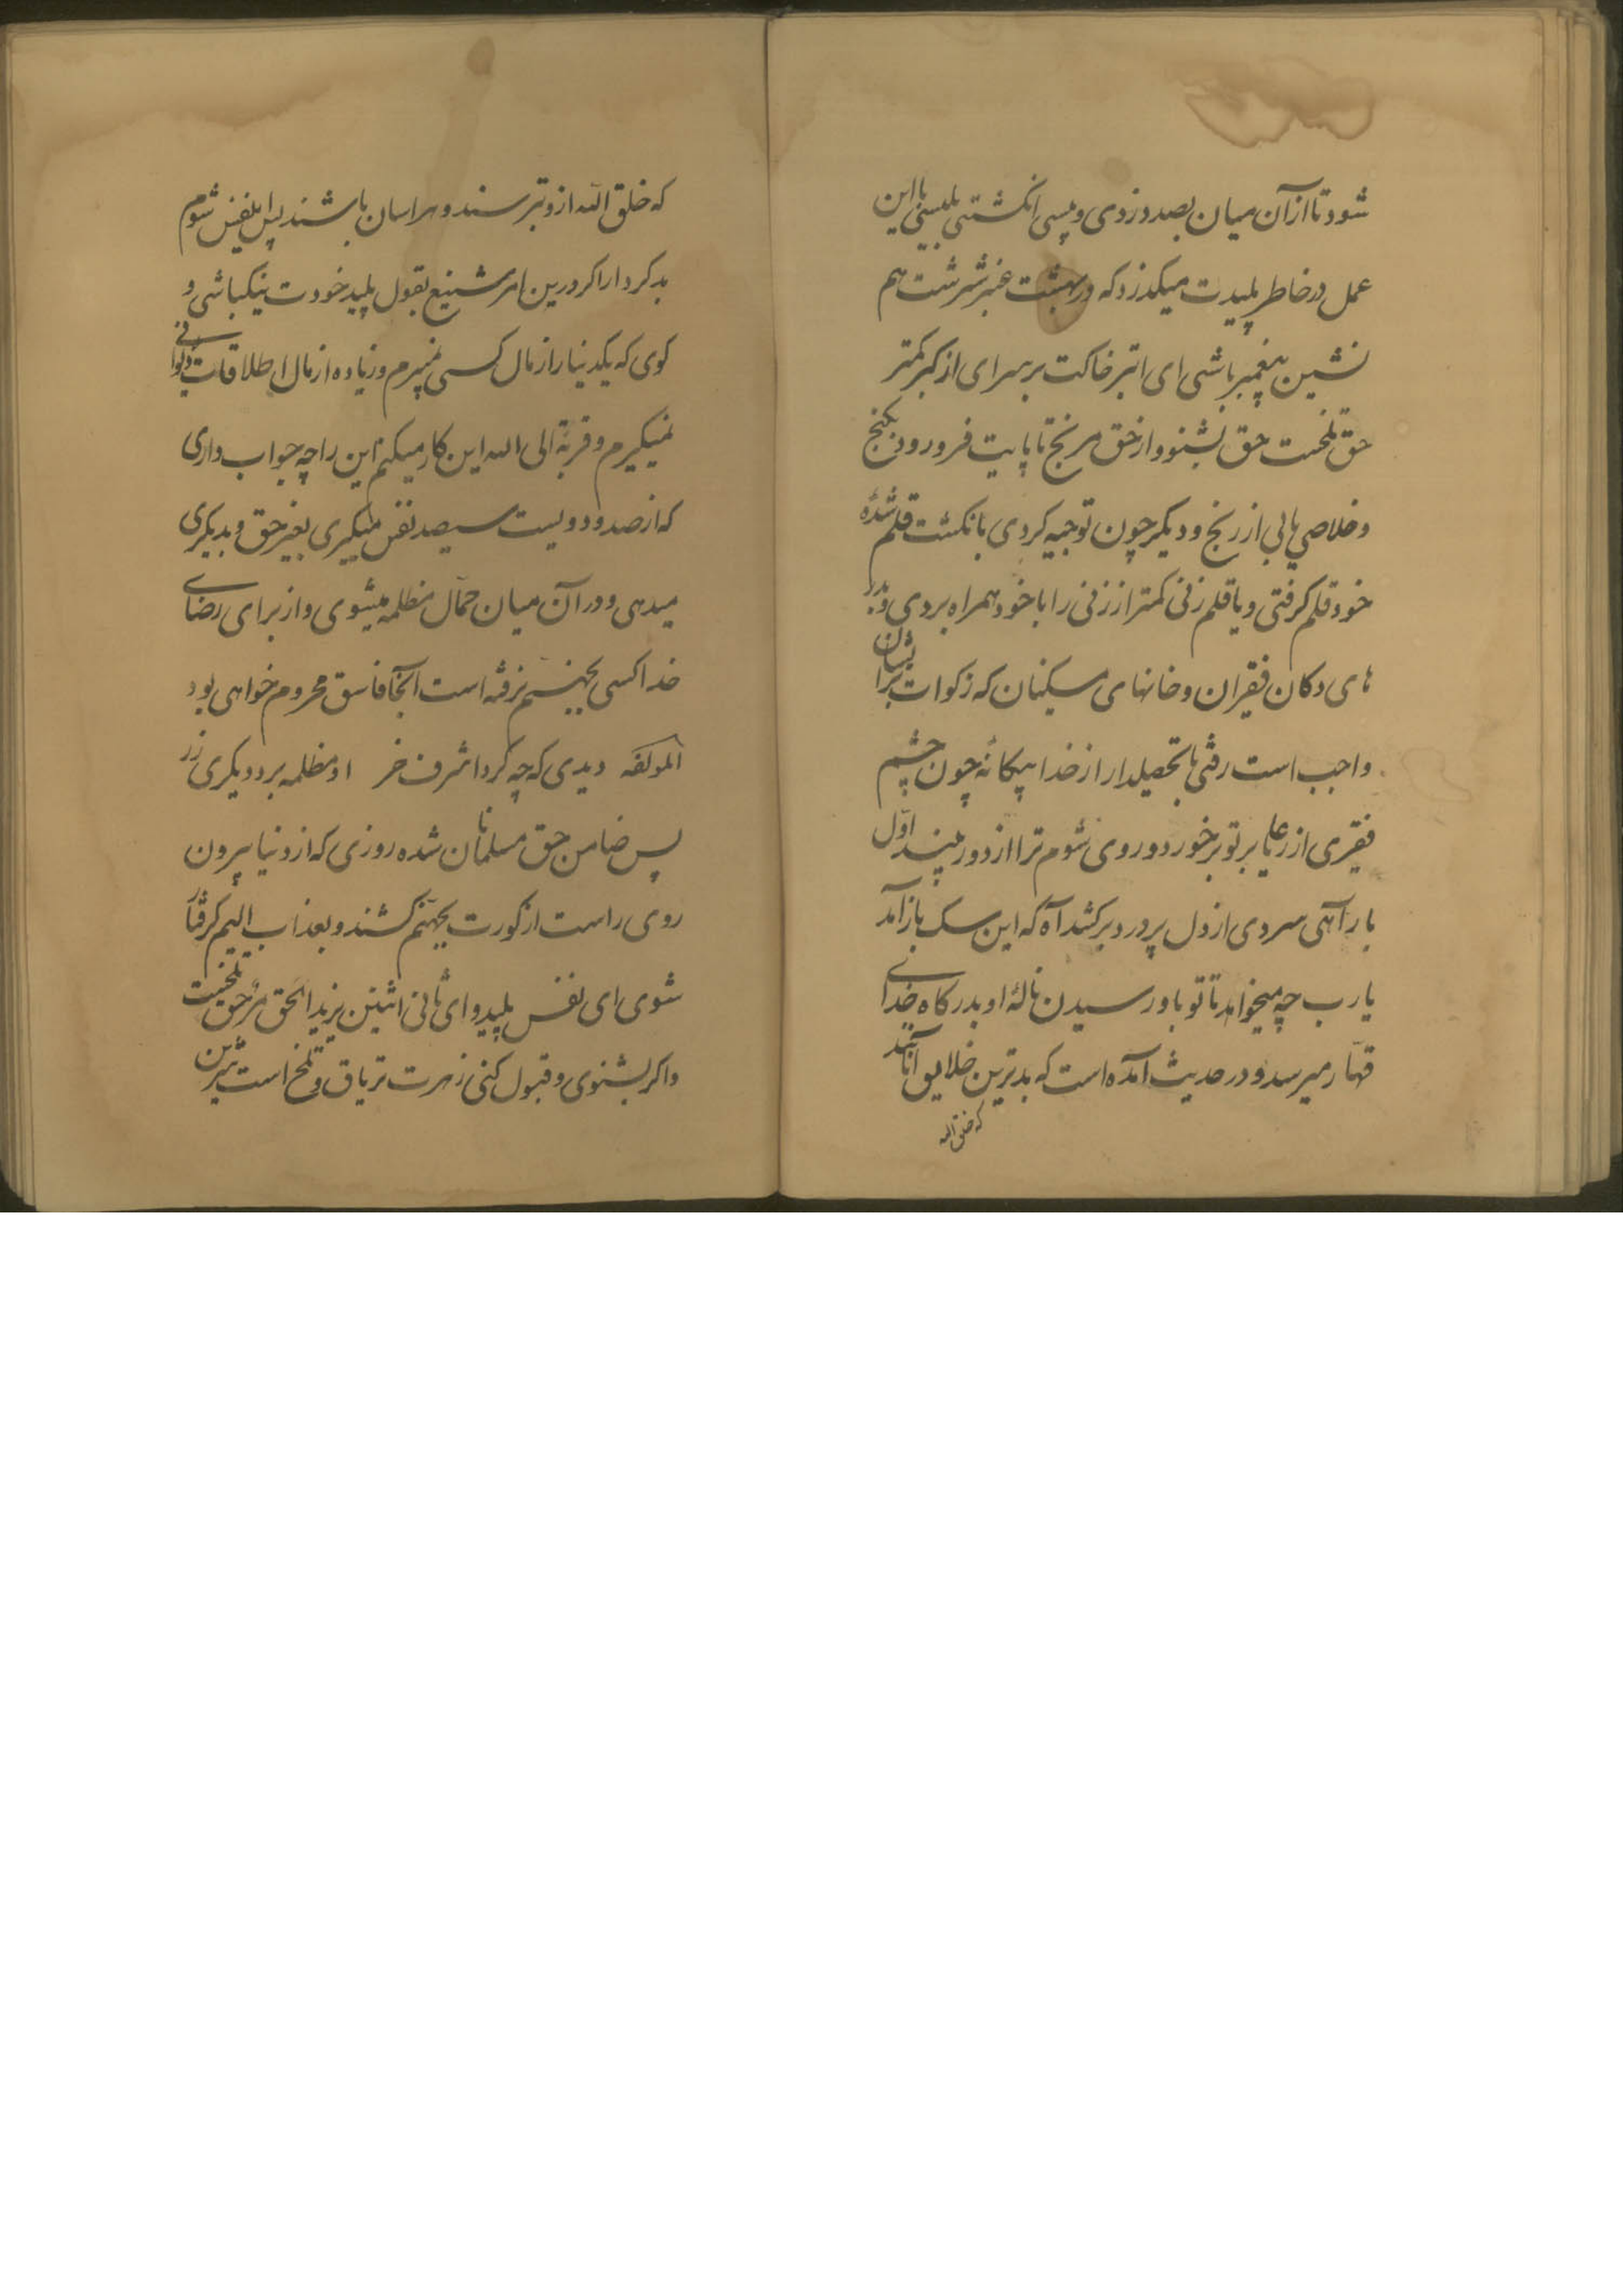 شود تا از آن میان بصد دزدی و پسی انگشتی بلیسی با این
عمل در خاطر پلیدت میگذرد که در بهشت عنبر سرشت هم
نشین پیغمبر باشی ای ابتر خاکت بر سر ای از کبر کمتر
حق تلخست حق بشنو و از حق مرنج تا پایت فرو رود بگنج
و خلاصی یابی از رنج و دیگر چون توجیه کردی بانگشت قلم شدهٔ
خود قلم گرفتی و یا قلم زنی کمتر از زنی را با خود همراه بردی و بدر
های دکان فقیران و خانهای مسکینان که زکوات برایشان
واجب است رفتی با تحصیلدار از خدا بیگانه چون چشم
فقیری از رعایا بر تو برخورد و روی شوم ترا از دور بیند اول
بار آهی سردی از دل پر درد برکشد آه که این سگ باز آمد
یا رب چه میخواهد تا تو باو رسیدن نالهٔ او بدرگاه خدای
قهار میرسد و در حدیث آمده است که بدترین خلایق آنانند
که خلق الله
که خلق الله ازو ترسند و هراسان باشند پس ای نفس شوم
بد کردار اگر درین امر شنیع بقول پلید خودت نیک باشی و
گوی که یکدینار از مال کسی نمیبرم و زیاده از مال اطلاقات دیوانی
نمیگیرم و قربة الی الله این کار میکنم این را چه جواب داری
که از صد و دویست سیصد نفس میگیری بغیر حق و بدیگری
میدهی و در آن میان حمال مظلمه میشوی و از برای رضای
خدا کسی بجهنم نرفته است آنجا فاسق محروم خواهی بود
لمؤلفه دیدی که چه کرد اشرف خر او مظلمه برد و دیگری زر
پس ضامن حق مسلمانان شده روزی که از دنیا بیرون
روی راست از گورت بجهنم کشند و بعذاب الیم گرفتار
شوی ای نفس پلید و ای ثانی اثنین یزید الحق مر حق تلخیست
و اگر بشنوی و قبول کنی زهرت تریاق و تلخ است شیرین